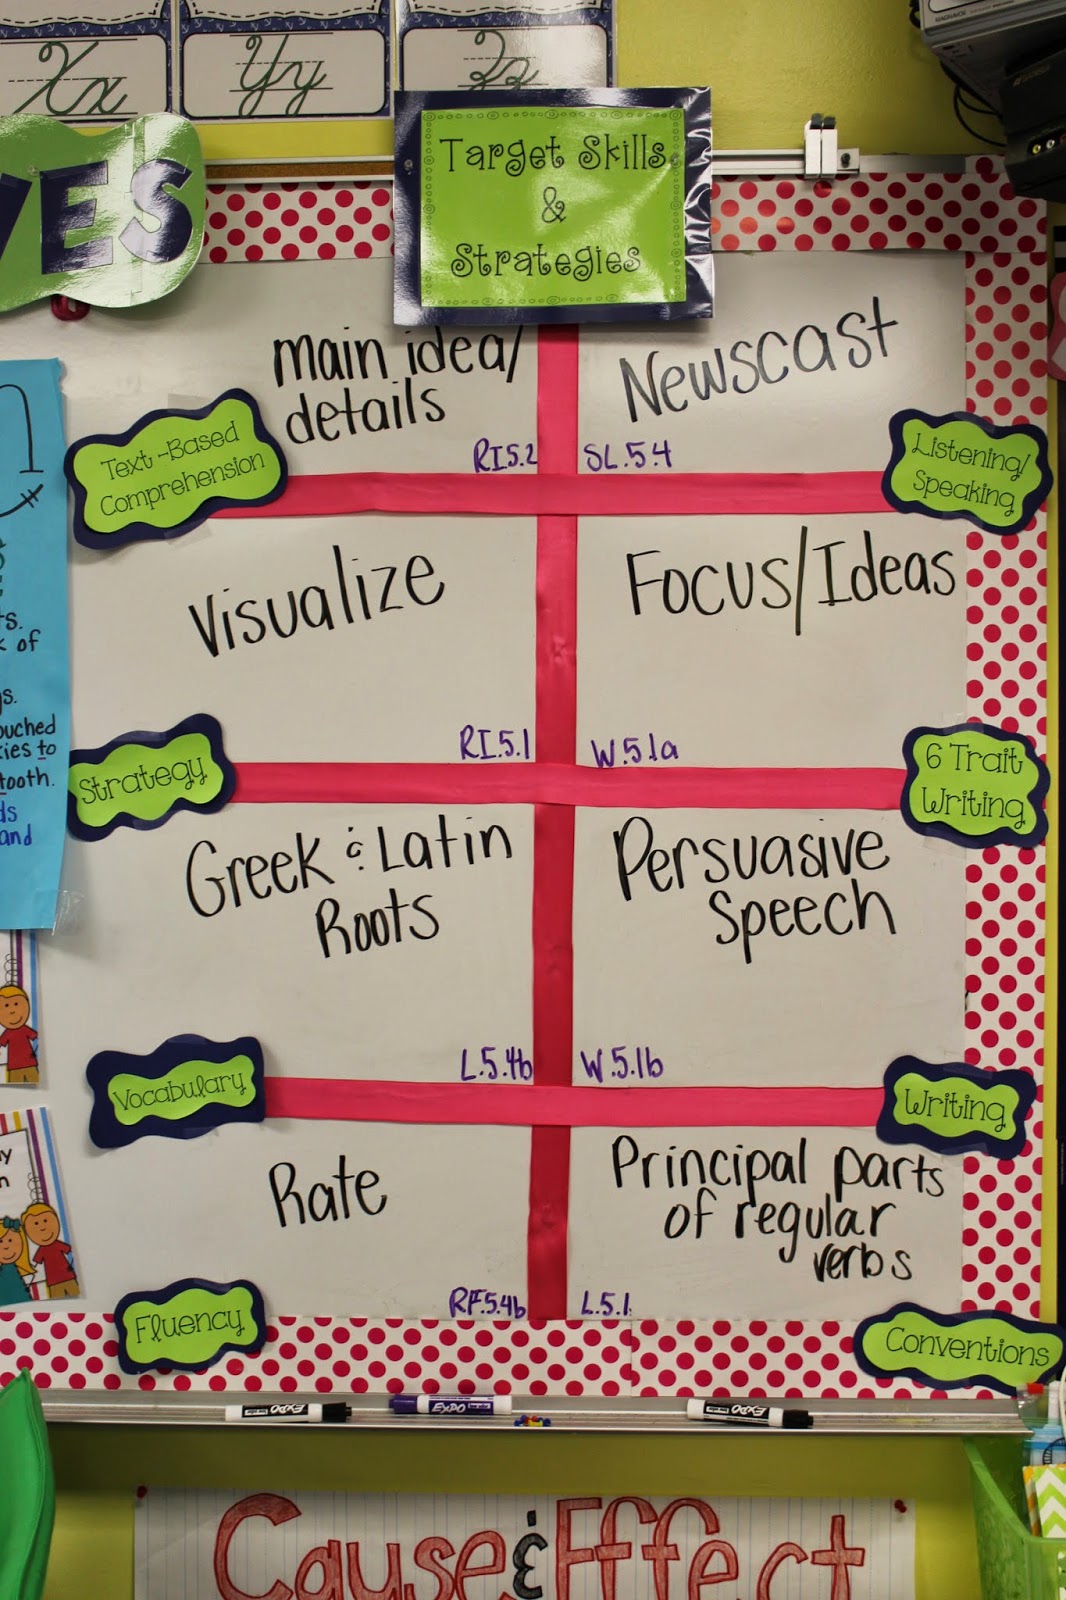 Xx
Yy
Zz
VES
Target Skills
&
Strategies
main idea/
details
RI5.2
Text-Based
Comprehension
Newscast
SL.5.4
Listening/
Speaking
Visualize
RI.5.1
Strategy
Focus/Ideas
W.5.1a
6 Trait
Writing
Greek & Latin
Roots
L.5.4b
Vocabulary
Persuasive
Speech
W.5.1b
Writing
Rate
RF.5.4b
Fluency
Principal parts
of regular
verbs
L.5.1
Conventions
of
ouched
to
tooth.
and
EXPO
EXPO
EXPO
Cause & Effect